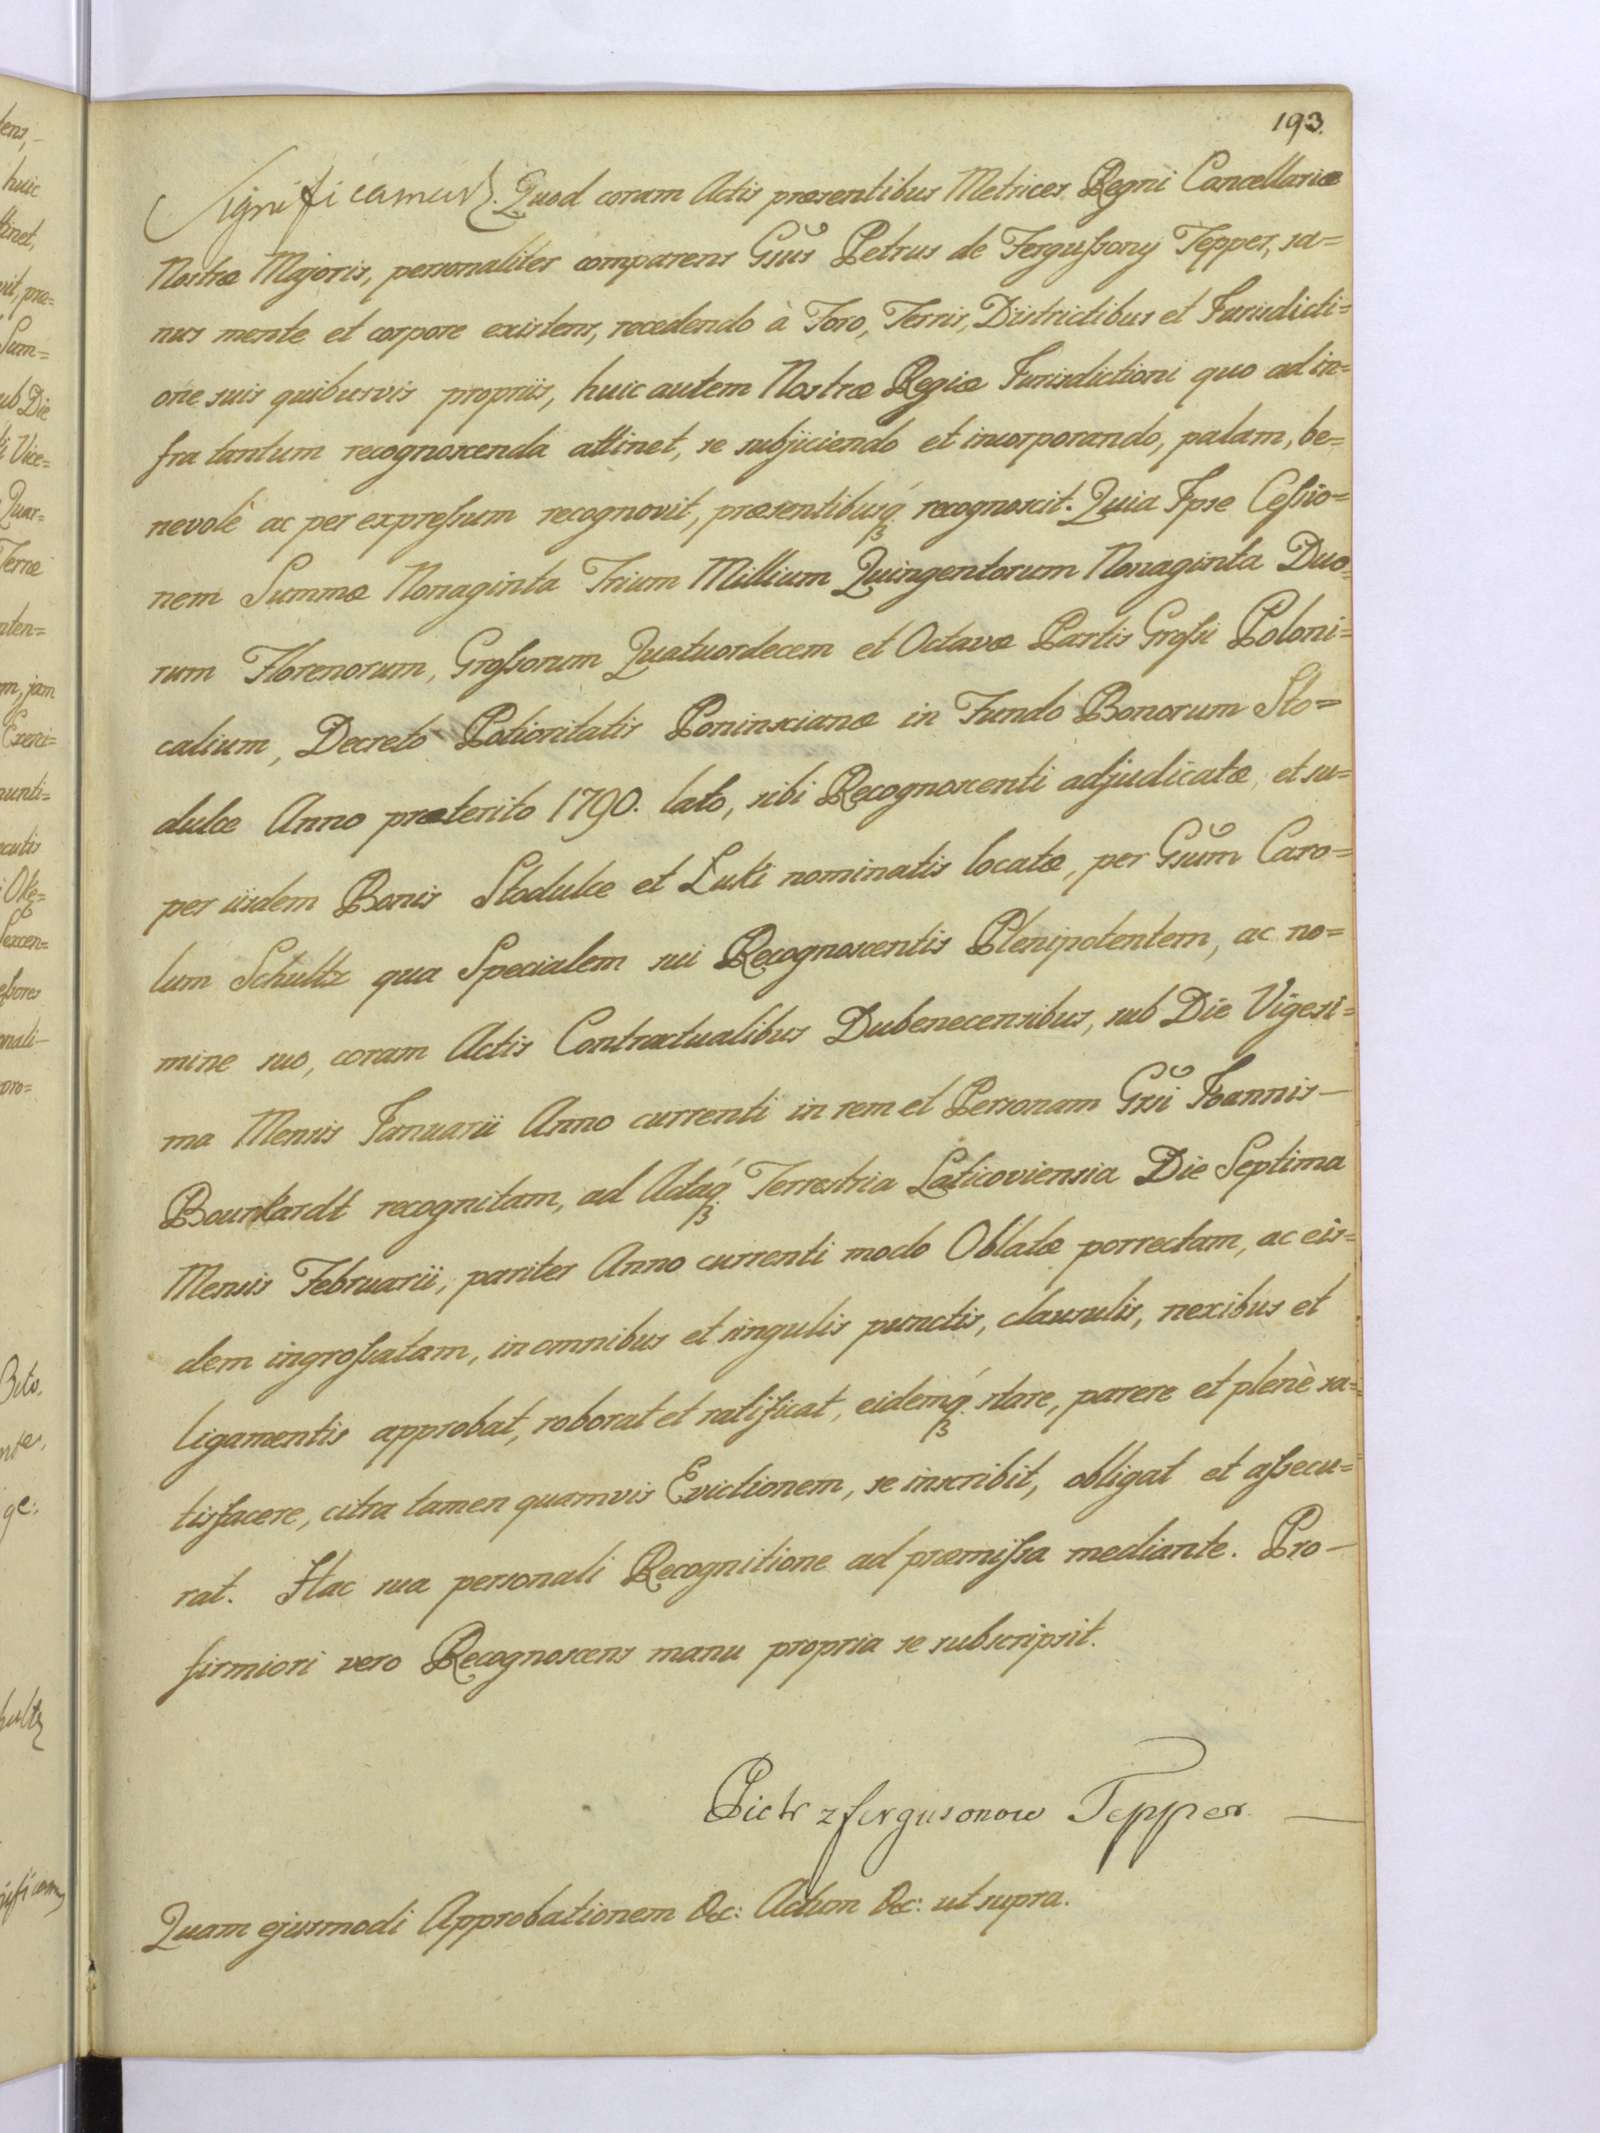 193.
Significamus. Quod coram Actis præsentibus Metrices Regni Cancellariæ
Nostræ Majoris, personaliter comparens Gsus Petrus de Fergußony Tepper, sa=
nus mente et corpore existens, recedendo à Foro, Terris, Districtibus et Jurisdicti=
one suis quibusvis propriis, huic autem Nostræ Regiæ Jurisdictioni quo ad in=
fra tantum recognoscenda attinet, se subjiciendo et incorporando, palam, be=
nevolè ac per expreßum recognovit, præsentibusq́ꝫ recognoscit. Quia Ipse Ceßio=
nem Summæ Nonaginta Trium Millium Quingentorum Nonaginta Duo=
rum Florenorum, Großorum Quatuordecem et Octavæ Partis Großi Poloni=
calium, Decreto Potioritatis Poninscianæ in Fundo Bonorum Sto=
dulce Anno præterito 1790. lato, sibi Recognoscenti adjudicatæ, et su=
per iisdem Bonis Stodulce et Łuki nominatis locatæ, per Gsum Caro=
lum Schultz qua Specialem sui Recognoscentis Plenipotentem, ac no=
mine suo, coram Actis Contractualibus Dubenecensibus, sub Die Vigesi=
ma Mensis Januarii Anno currenti in rem et Personam Gsi Joannis—
Bourkardt recognitam, ad Actaq́ꝫ Terrestria Laticoviensia Die Septima
Mensis Februarii, pariter Anno currenti modo Oblatæ porrectam, ac eis=
dem ingroßatam, in omnibus et singulis punctis, clausulis, nexibus et
ligamentis approbat, roborat et ratificat, eidemq́ꝫ stare, parere et plenè sa=
tisfacere, citra tamen quamvis Evictionem, se inscribit, obligat et aßecu=
rat. Hac sua personali Recognitione ad præmißa mediante. Pro—
firmiori vero Recognoscens manu propria se subscripsit.
Piotr z fergusonow Tepper.—
Quam ejusmodi Approbationem &c: Actum &c: ut supra.